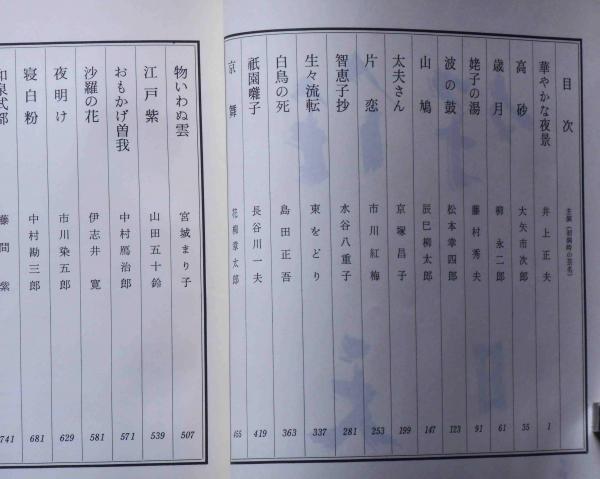 目次 主演(初演時の芸名)
華やかな夜景 井上正夫 1
高砂 大矢市次郎 35
歳月 柳永二郎 61
姥子の湯 藤村秀夫 91
波の鼓 松本幸四郎 123
山鳩 辰巳柳太郎 147
太夫さん 京塚昌子 199
片恋 市川紅梅 253
智恵子抄 水谷八重子 281
生々流転 東をどり 337
白鳥の死 島田正吾 363
祇園囃子 長谷川一夫 419
京舞 花柳章太郎 455
物いわぬ雲 宮城まり子 507
江戸紫 山田五十鈴 539
おもかげ曽我 中村鴈治郎 571
沙羅の花 伊志井寛 581
夜明け 市川染五郎 629
寝白粉 中村勘三郎 681
和泉式部 藤間紫 741